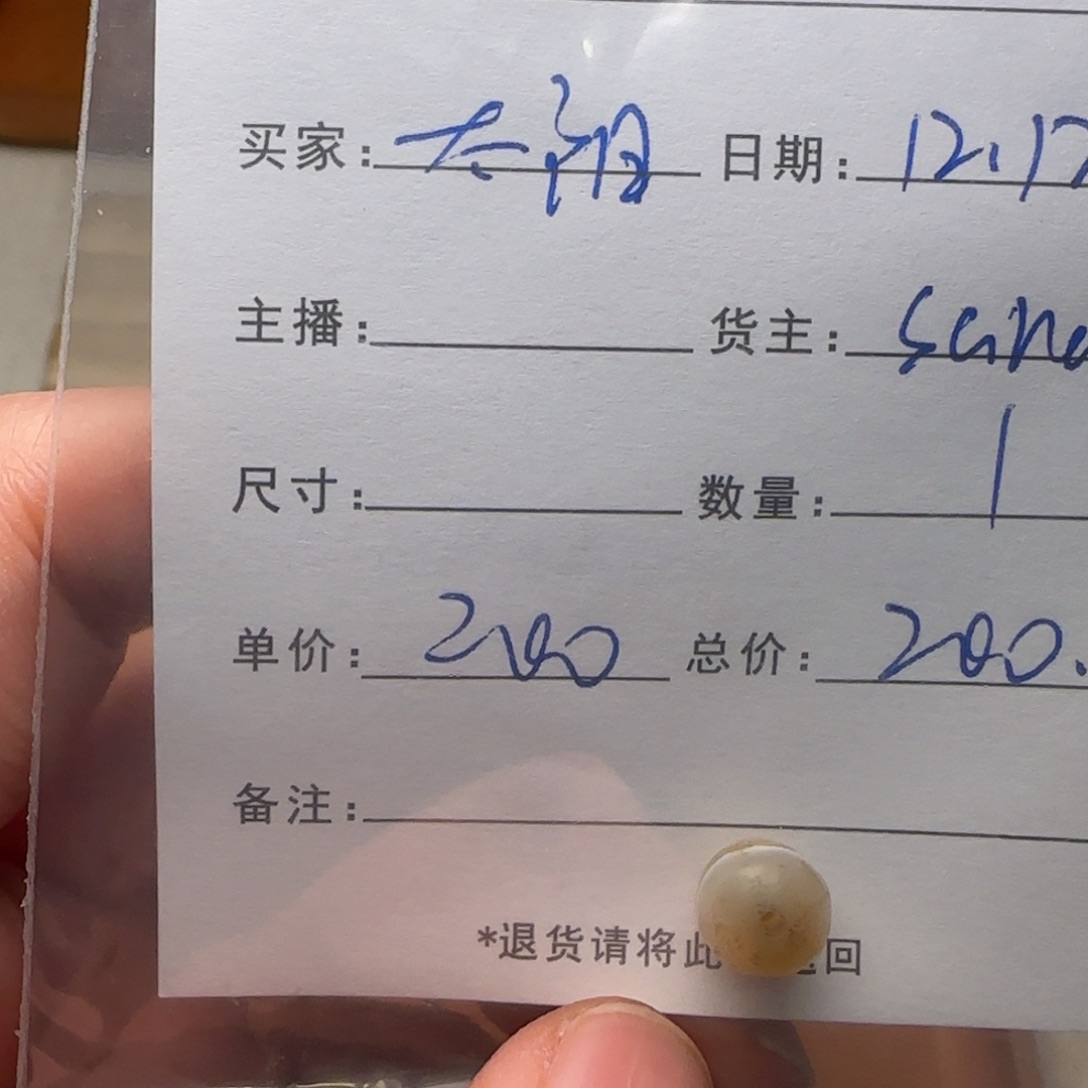 买家: 日期: 12.12
主播: 货主:
尺寸: 数量: 1
单价: 200 总价: 200.
备注:
*退货请将此 回